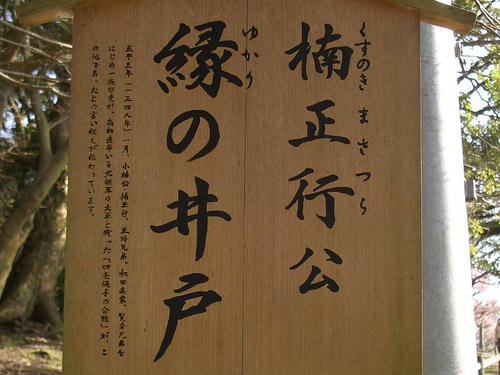 くすのき まさつら
楠正行公
ゆかり
縁の井戸
正平三年(一三四八年)一月、小楠公・楠正行、正時兄弟、和田高家、賢秀兄弟を
はじめ一族郎党が、高師直率いる北朝軍の大軍と戦った「四条縄手の合戦」が、こ
の地である。たとの言い伝えが伝わっています。